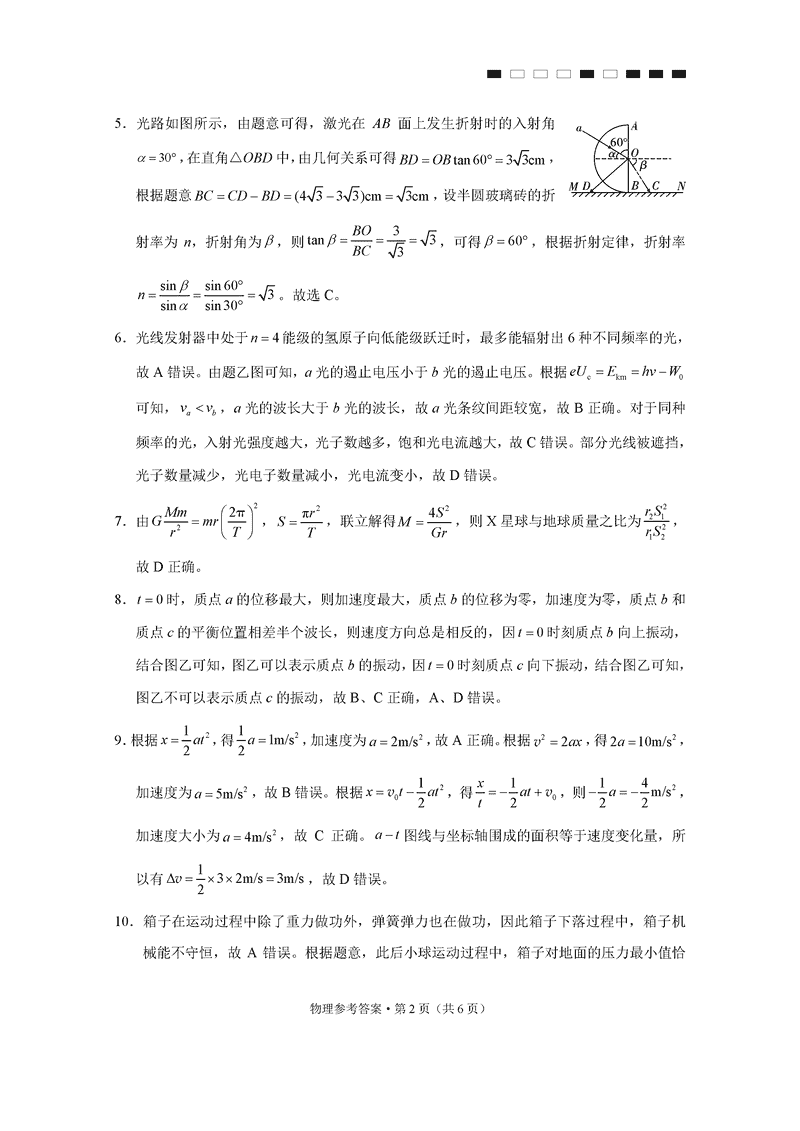 5．光路如图所示，由题意可得，激光在 AB 面上发生折射时的入射角
α=30°，在直角△OBD 中，由几何关系可得BD=OB tan60°=3√3cm，
根据题意BC=CD−BD=(4√3−3√3)cm=√3cm，设半圆玻璃砖的折
射率为 n，折射角为β，则tanβ=BO/BC=3/√3=√3，可得β=60°，根据折射定律，折射率
n=sinβ/sinα=sin60°/sin30°=√3。故选 C。
a
A
60°
α
O
β
M D
B
C
N
6．光线发射器中处于n=4能级的氢原子向低能级跃迁时，最多能辐射出 6 种不同频率的光，
故 A 错误。由题乙图可知，a 光的遏止电压小于 b 光的遏止电压。根据eU_c=E_km=hν−W_0
可知，ν_a<ν_b，a 光的波长大于 b 光的波长，故 a 光条纹间距较宽，故 B 正确。对于同种
频率的光，入射光强度越大，光子数越多，饱和光电流越大，故 C 错误。部分光线被遮挡，
光子数量减少，光电子数量减小，光电流变小，故 D 错误。
7．由G Mm/r²=mr(2π/T)²，S=πr²/T，联立解得M=4S²/Gr，则 X 星球与地球质量之比为r₂S₁²/r₁S₂²，
故 D 正确。
8．t=0时，质点 a 的位移最大，则加速度最大，质点 b 的位移为零，加速度为零，质点 b 和
质点 c 的平衡位置相差半个波长，则速度方向总是相反的，因t=0时刻质点 b 向上振动，
结合图乙可知，图乙可以表示质点 b 的振动，因t=0时刻质点 c 向下振动，结合图乙可知，
图乙不可以表示质点 c 的振动，故 B、C 正确，A、D 错误。
9．根据x=1/2 at²，得1/2 a=1m/s²，加速度为a=2m/s²，故 A 正确。根据v²=2ax，得2a=10m/s²，
加速度为a=5m/s²，故 B 错误。根据x=v₀t−1/2 at²，得x/t=−1/2 at+v₀，则−1/2 a=−4/2 m/s²，
加速度大小为a=4m/s²，故 C 正确。a−t图线与坐标轴围成的面积等于速度变化量，所
以有Δv=1/2×3×2m/s=3m/s，故 D 错误。
10．箱子在运动过程中除了重力做功外，弹簧弹力也在做功，因此箱子下落过程中，箱子机
械能不守恒，故 A 错误。根据题意，此后小球运动过程中，箱子对地面的压力最小值恰
物理参考答案·第 2 页（共 6 页）